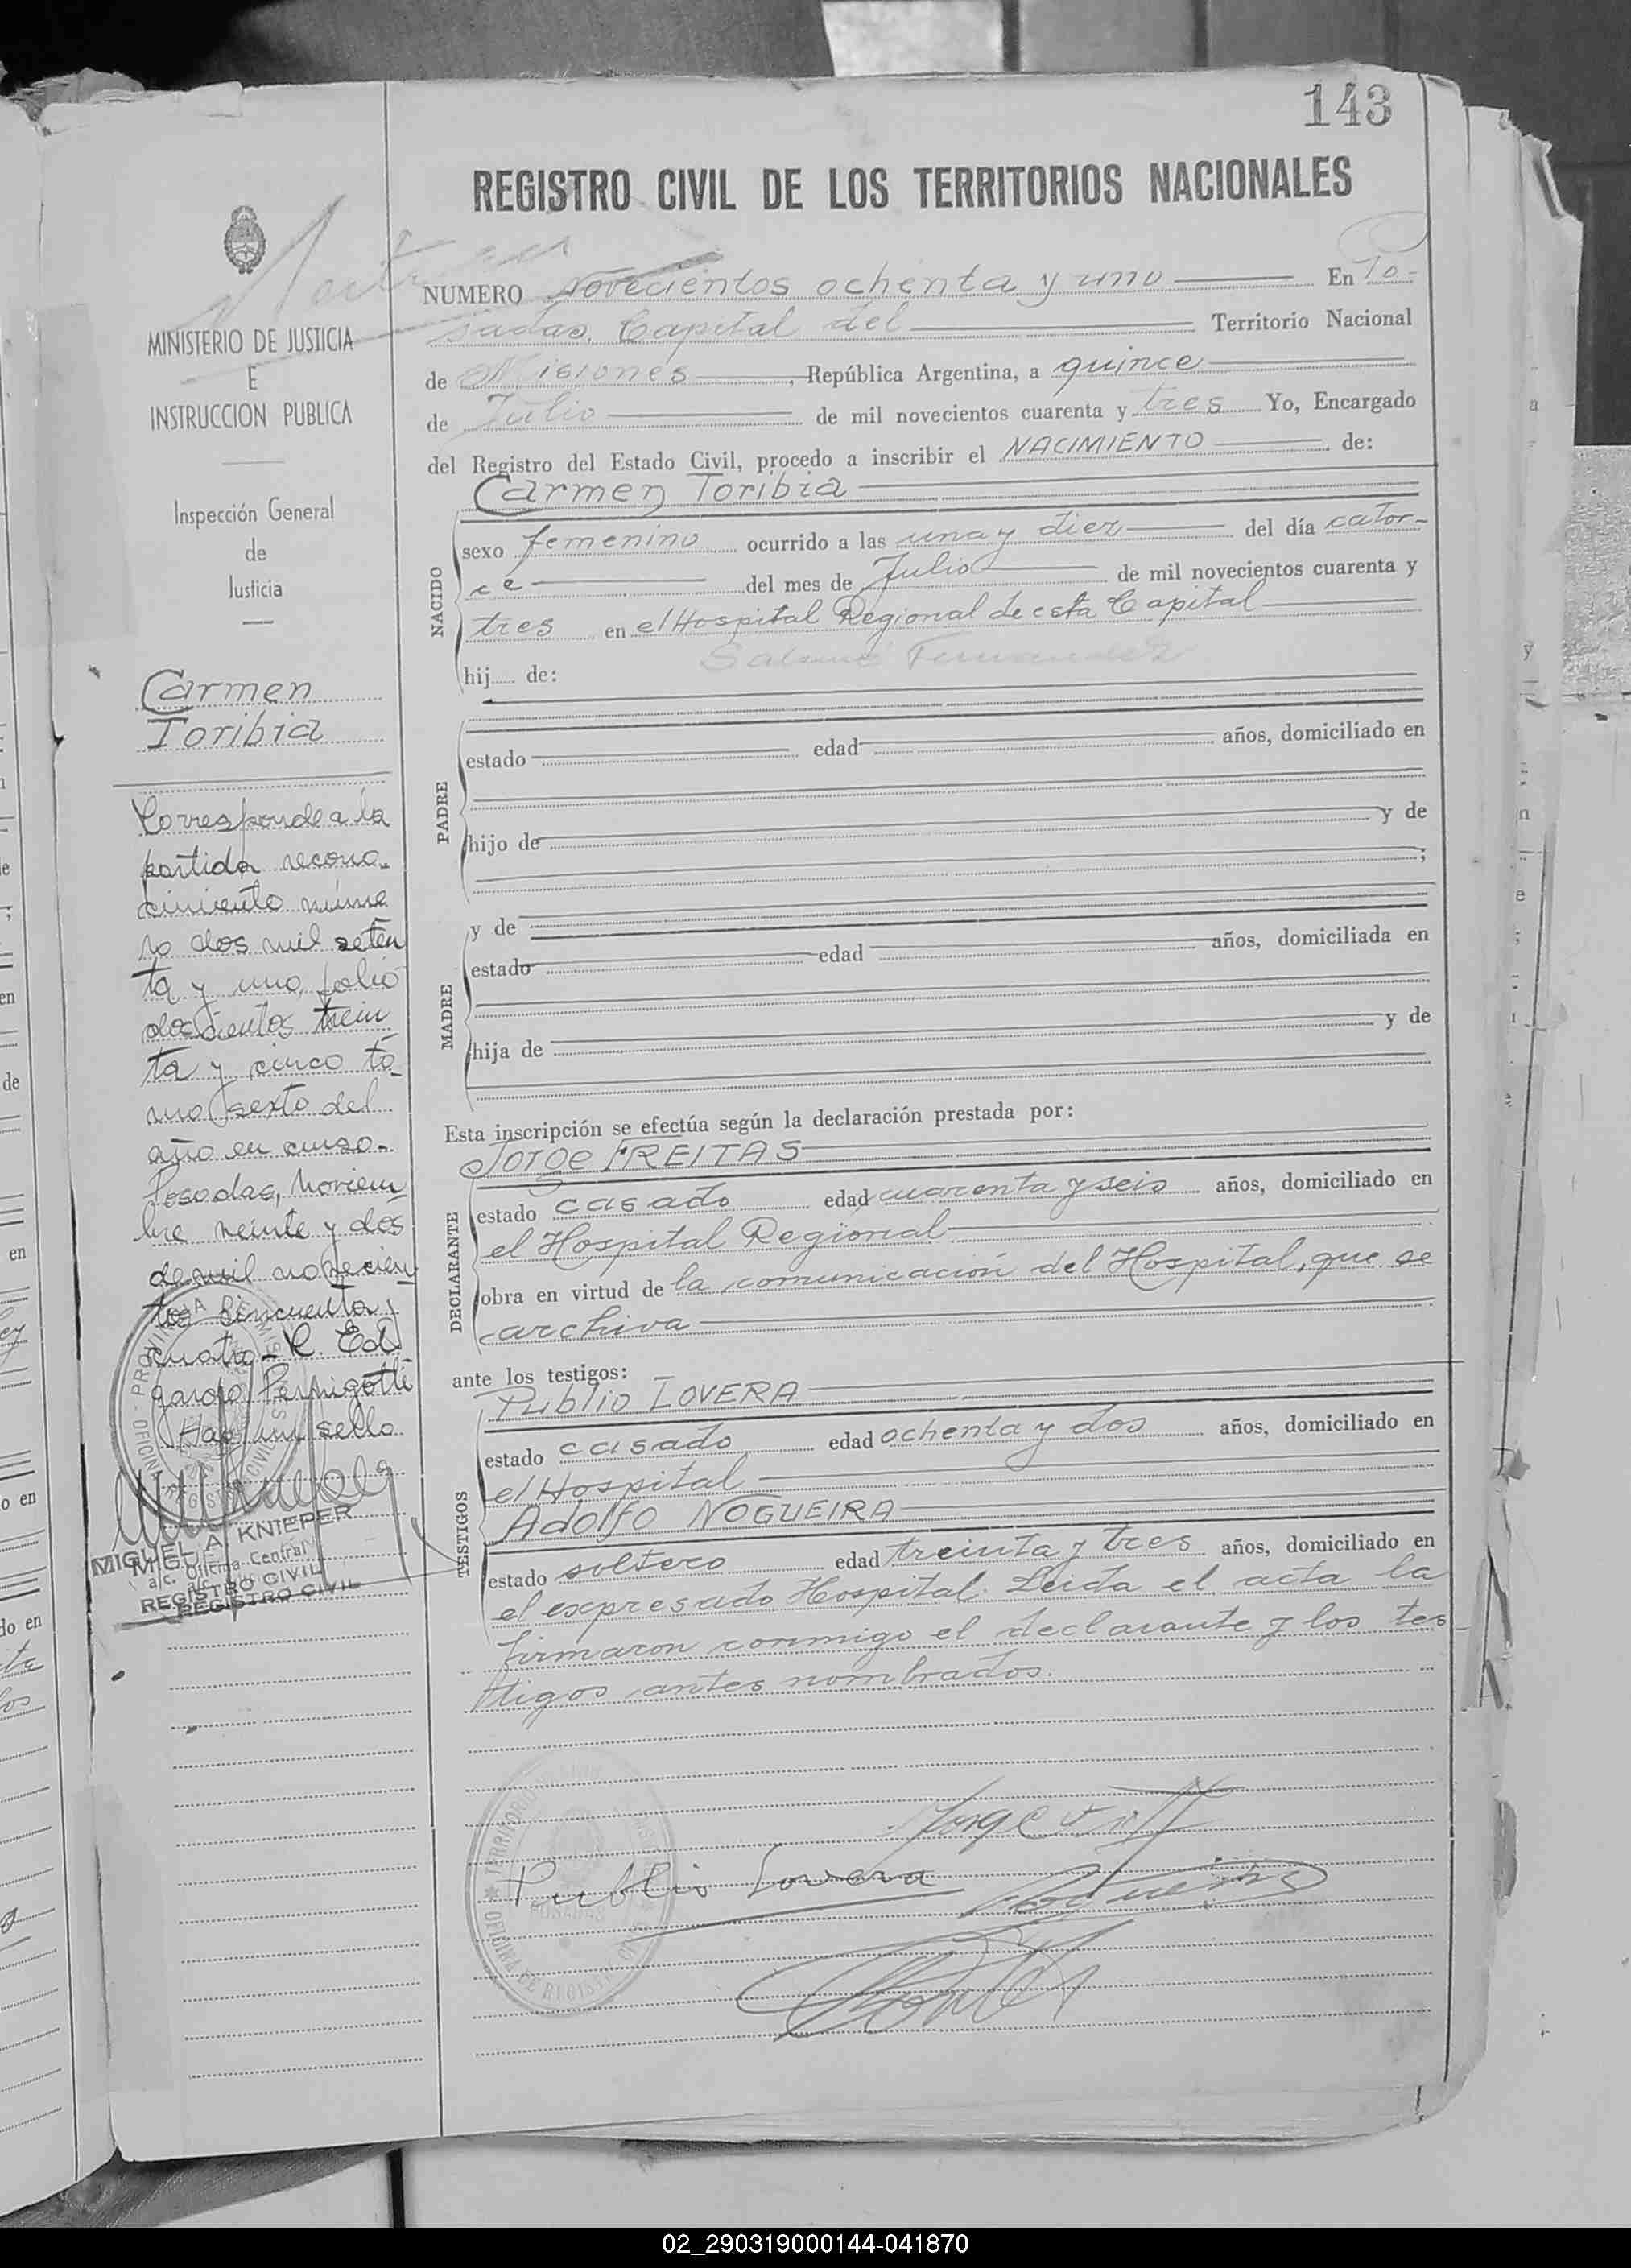 143
REGISTRO CIVIL DE LOS TERRITORIOS NACIONALES
NUMERO novecientos ochenta y uno En Po-
sadas, Capital del Territorio Nacional
de Misiones, República Argentina, a quince
de Julio de mil novecientos cuarenta y tres Yo, Encargado
del Registro del Estado Civil, procedo a inscribir el NACIMIENTO de:
Carmen Toribia
NACIDO
sexo femenino ocurrido a las una y diez del día cator-
ce del mes de Julio de mil novecientos cuarenta y
tres en el Hospital Regional de esta Capital
Fernandez
hij de:
PADRE
estado edad años, domiciliado en
hijo de y de
;
MADRE
y de
estado edad años, domiciliada en
hija de y de
Esta inscripción se efectúa según la declaración prestada por:
Jorge FREITAS
DECLARANTE
estado casado edad cuarenta y seis años, domiciliado en
el Hospital Regional
obra en virtud de la comunicación del Hospital, que se
archiva
ante los testigos:
Publio LOVERA
TESTIGOS
estado casado edad ochenta y dos años, domiciliado en
el Hospital
Adolfo NOGUEIRA
estado soltero edad treinta y tres años, domiciliado en
el expresado Hospital. Leida el acta la
firmaron conmigo el declarante y los tes
tigos antes nombrados.
Publio Lovera
MINISTERIO DE JUSTICIA
E
INSTRUCCION PUBLICA
Inspección General
de
Justicia
Carmen
Toribia
Corresponde a la
partida recono-
cimiento núme
ro dos mil seten
ta y uno, folio
doscientos trein
ta y cinco to-
mo sexto del
año en curso.-
Posadas, Noviem
bre veinte y dos
de mil novecien
tos cincuenta y
cuatro - R. Ed
gardo Pernigotti
Hay un sello
MIGUEL A. KNIEPER
a/c. Oficina Central
REGISTRO CIVIL
REGISTRO CIVIL
02_290319000144-041870